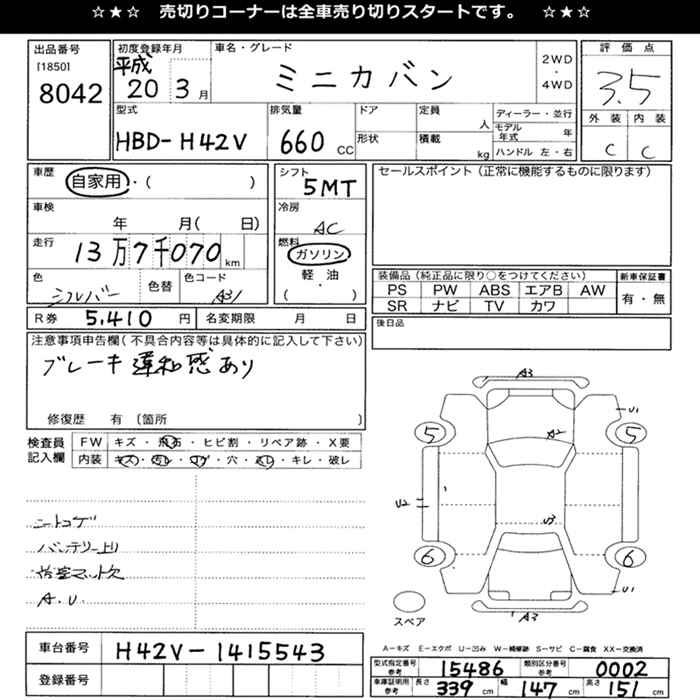 ☆★☆ 売切りコーナーは全車売り切りスタートです。 ☆★☆
出品番号
[1850]
8042
初度登録年月
平成
20 3月
車名・グレード
ミニカバン
2WD
・
4WD
評価点
3.5
外装 内装
C C
型式
HBD-H42V
排気量
660 CC
ドア
形状
定員
人
積載
kg
ディーラー・並行
モデル年式 年
ハンドル 左・右
車歴
自家用・( )
車検
年 月( 日)
走行
13万7千070 km
色
シルバー
色替
色コード
A31
シフト
5MT
冷房
AC
燃料
ガソリン
軽・油
( ・ )
セールスポイント(正常に機能するものに限ります)
装備品(純正品に限り○をつけてください)
PS PW ABS エアB AW
SR ナビ TV カワ
新車保証書
有・無
R券 5,410 円
名変期限 月 日
後日品
注意事項申告欄(不具合内容等は具体的に記入して下さい)
ブレーキ違和感あり
修復歴 有 〔箇所
検査員
記入欄
FW キズ・飛石・ヒビ割・リペア跡・X要
内装 キズ・汚レ・コゲ・穴・スレ・キレ・破レ
ニートコゲ
バッテリー上り
荷室マット欠
A.U.
A3
U1
5
5
A2
U2
U3
6
6
U1
A3
スペア
A-キズ E-エクボ U-凹み W-補修跡 S-サビ C-腐食 XX-交換済
車台番号 H42V-1415543
登録番号
型式指定番号
参考
15486
類別区分番号
参考
0002
車庫証明用
参考
長さ 339 cm
幅 147 cm
高さ 151 cm